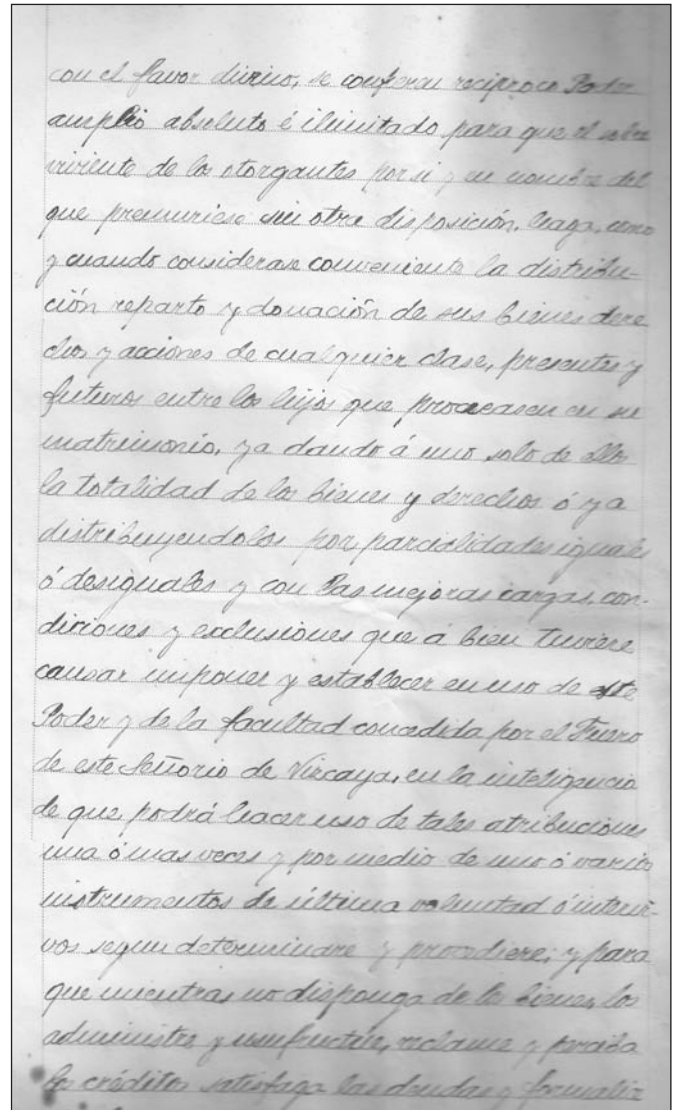 con el favor divino, se confieren reciproco Poder
amplio absoluto é ilimitado para que el sobre
viviente de los otorgantes por si y en nombre del
que premuriese sin otra disposición, haga, como
y cuando considerase conveniente la distribu-
ción reparto y donación de sus bienes dere
chos y acciones de cualquier clase, presentes y
futuros entre los hijos que procreasen en su
matrimonio, ya dando á uno solo de ellos
la totalidad de los bienes y derechos ó ya
distribuyendolos por parcialidades iguales
ó desiguales y con las mejoras cargas, con-
diciones y exclusiones que á bien tuviere
causar imponer y establecer en uso de este
Poder y de la facultad concedida por el Fuero
de este Señorio de Vizcaya, en la inteligencia
de que podrá hacer uso de tales atribuciones
una ó mas veces y por medio de uno ó varios
instrumentos de última voluntad ó intervi-
vos segun determinare y procediere; y para
que mientras no disponga de los bienes, los
administre y usufructúe, reclame y perciba
los créditos satisfaga las deudas y formalic